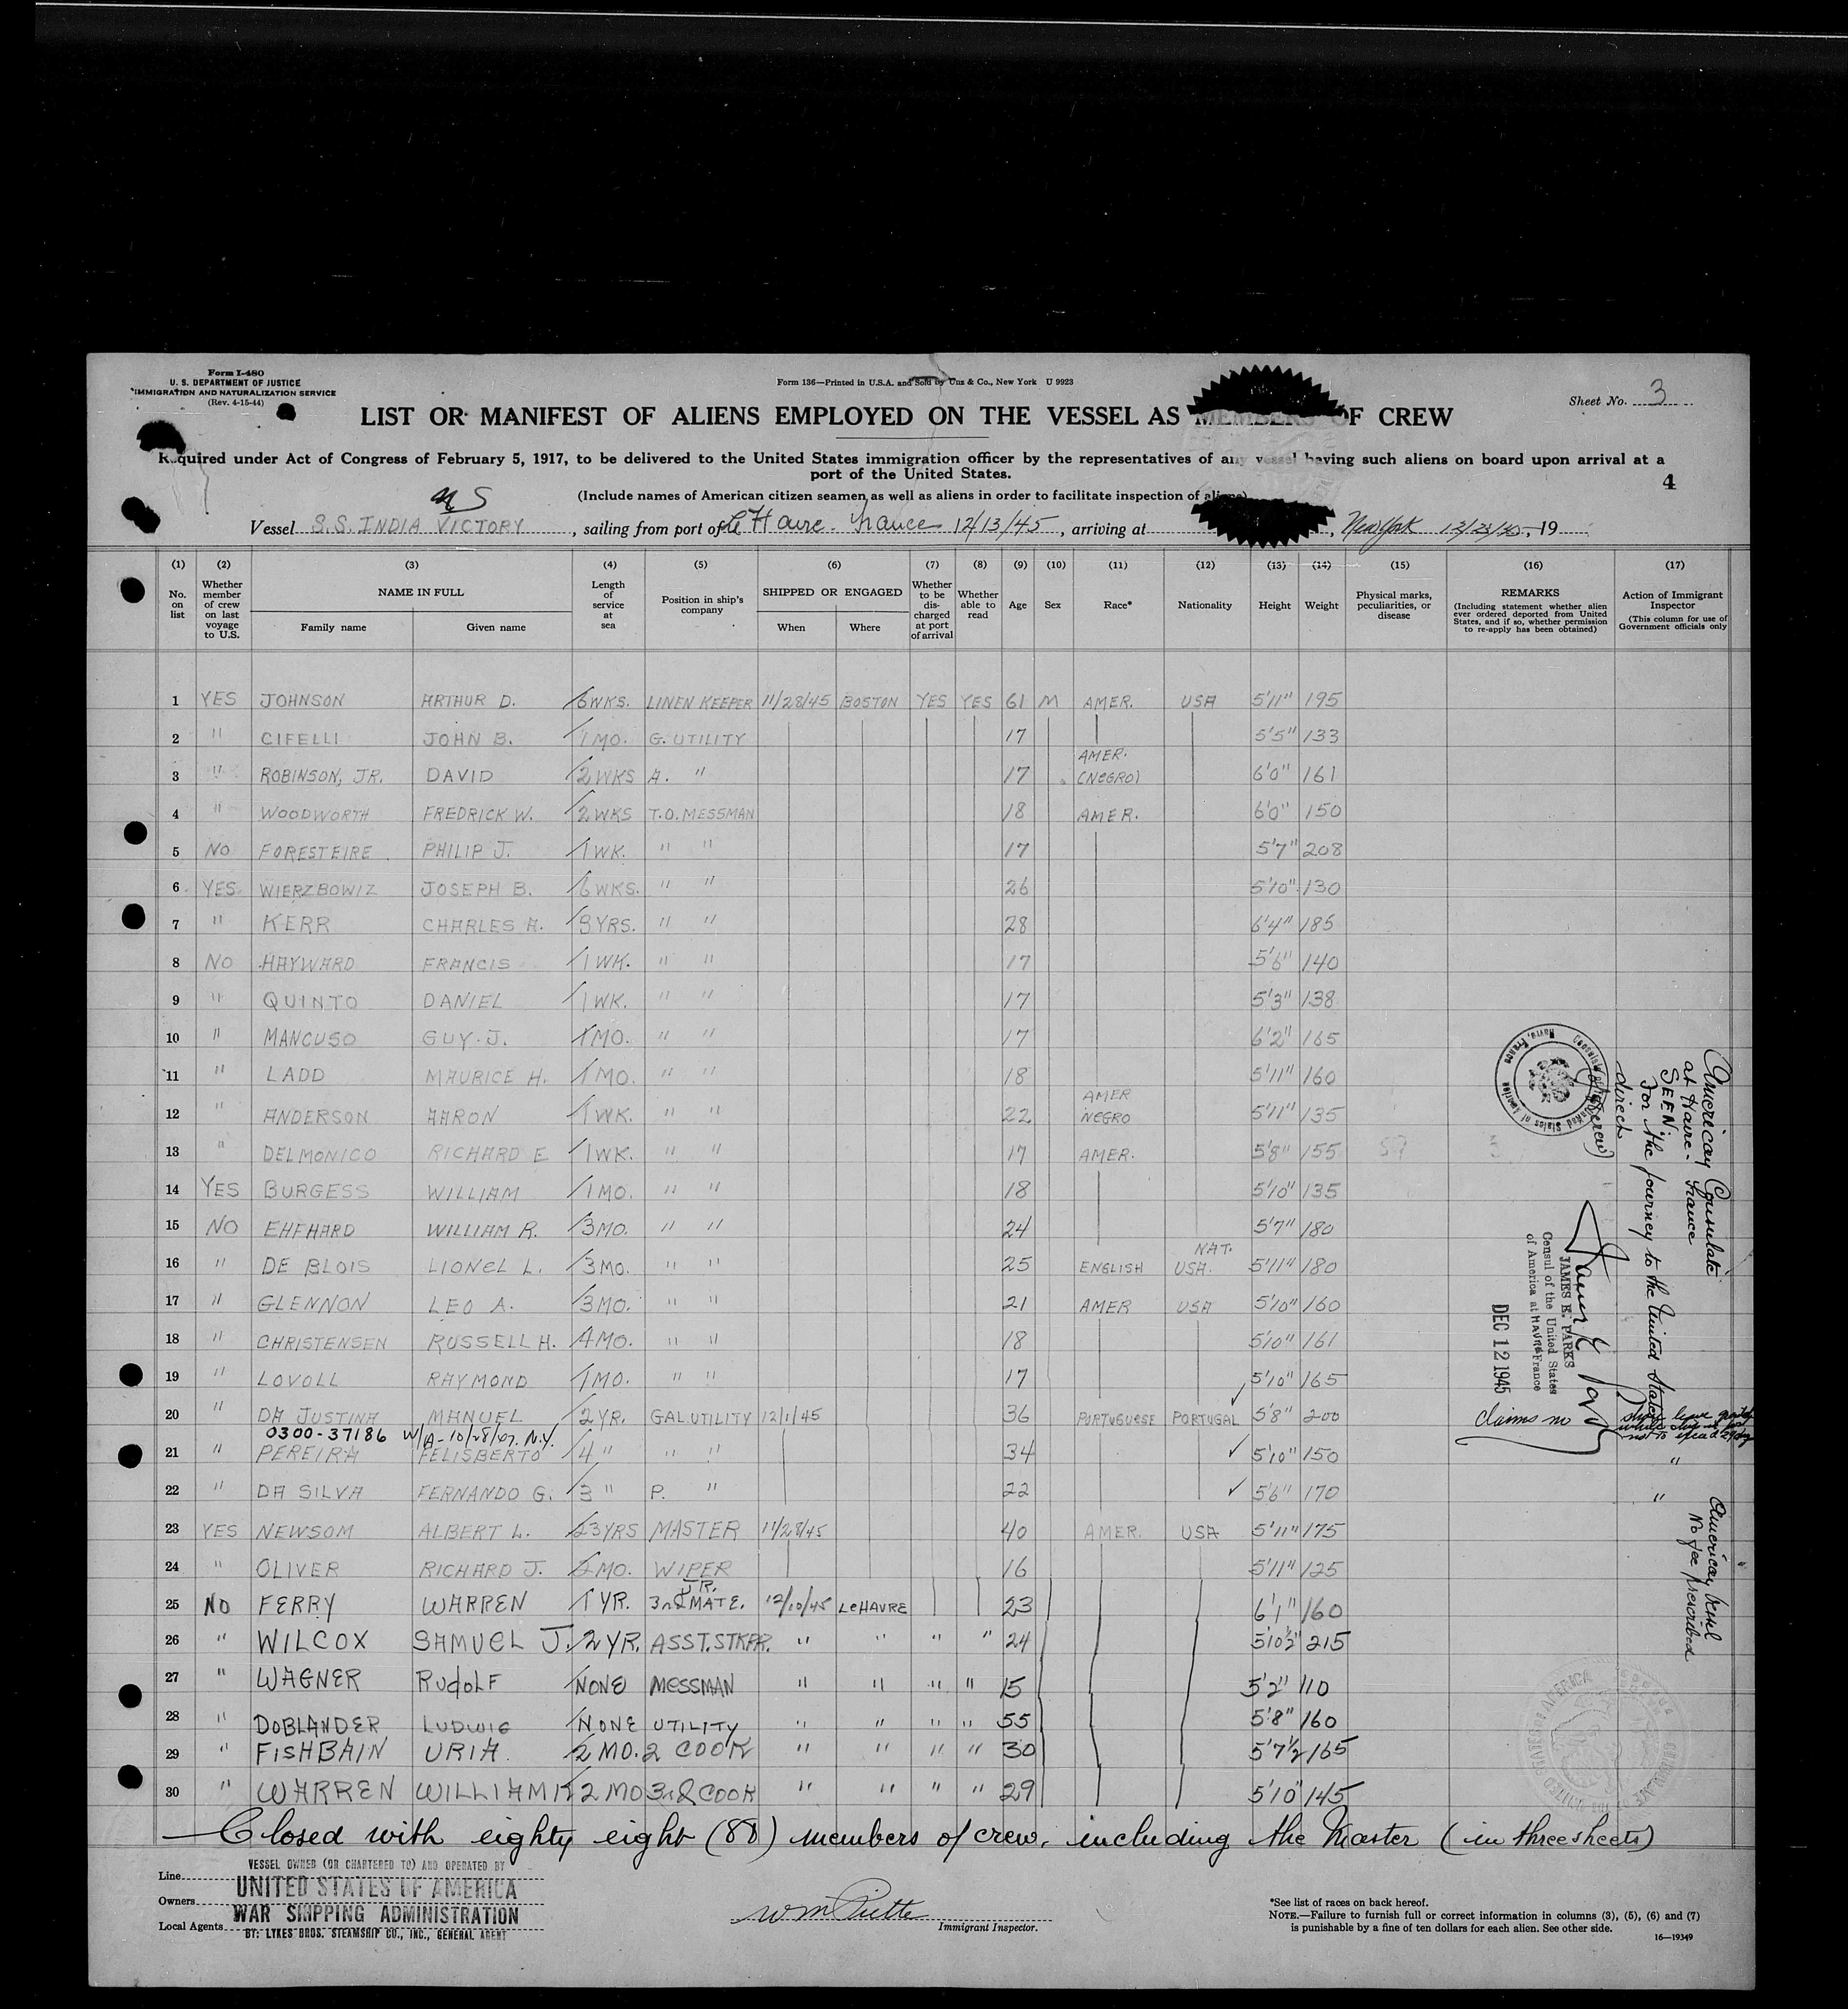 Form I-480
U. S. DEPARTMENT OF JUSTICE
IMMIGRATION AND NATURALIZATION SERVICE
(Rev. 4-15-44)
Form 136—Printed in U.S.A. and Sold by Unz & Co., New York U 9923
Sheet No. 3
LIST OR MANIFEST OF ALIENS EMPLOYED ON THE VESSEL AS MEMBERS OF CREW
Required under Act of Congress of February 5, 1917, to be delivered to the United States immigration officer by the representatives of any vessel having such aliens on board upon arrival at a
port of the United States.
4
(Include names of American citizen seamen as well as aliens in order to facilitate inspection of aliens)
Vessel S.S. INDIA VICTORY, sailing from port of Le Havre. France 12/13/45, arriving at , New York 12/23/45, 19
(1) (2) (3) (4) (5) (6) (7) (8) (9) (10) (11) (12) (13) (14) (15) (16) (17)
No. on list
Whether member of crew on last voyage to U.S.
NAME IN FULL
Family name
Given name
Length of service at sea
Position in ship's company
SHIPPED OR ENGAGED
When
Where
Whether to be discharged at port of arrival
Whether able to read
Age
Sex
Race*
Nationality
Height
Weight
Physical marks, peculiarities, or disease
REMARKS
(Including statement whether alien ever ordered deported from United States, and if so, whether permission to re-apply has been obtained)
Action of Immigrant Inspector
(This column for use of Government officials only
1 YES JOHNSON ARTHUR D. 6 WKS. LINEN KEEPER 11/28/45 BOSTON YES YES 61 M AMER. USA 5'11" 195
2 " CIFELLI JOHN B. 1 MO. G. UTILITY 17 5'5" 133
3 " ROBINSON, JR. DAVID 2 WKS A. " 17 AMER. (NEGRO) 6'0" 161
4 " WOODWORTH FREDRICK W. 2 WKS T.O. MESSMAN 18 AMER. 6'0" 150
5 NO FORESTEIRE PHILIP J. 1 WK. " " 17 5'7" 208
6 YES WIERZBOWIZ JOSEPH B. 6 WKS. " " 26 5'10" 130
7 " KERR CHARLES A. 3 YRS. " " 28 6'4" 185
8 NO HAYWARD FRANCIS 1 WK. " " 17 5'6" 140
9 " QUINTO DANIEL 1 WK. " " 17 5'3" 138
10 " MANCUSO GUY. J. 1 MO. " " 17 6'2" 165
11 " LADD MAURICE H. 1 MO. " " 18 5'11" 160
12 " ANDERSON AARON 1 WK. " " 22 AMER NEGRO 5'11" 135
13 " DELMONICO RICHARD E 1 WK. " " 17 AMER. 5'8" 155
14 YES BURGESS WILLIAM 1 MO. " " 18 5'10" 135
15 NO EHFHARD WILLIAM R. 3 MO. " " 24 5'7" 180
16 " DE BLOIS LIONEL L. 3 MO. " " 25 ENGLISH NAT. USA. 5'11" 180
17 " GLENNON LEO A. 3 MO. " " 21 AMER USA 5'10" 160
18 " CHRISTENSEN RUSSELL H. 4 MO. " " 18 5'10" 161
19 " LOVOLL RAYMOND 1 MO. " " 17 5'10" 165
20 " DA JUSTINA MANUEL 2 YR. GAL. UTILITY 12/1/45 36 PORTUGUESE PORTUGAL 5'8" 200 claims no
0300-37186 W/A-10/28/67. N.Y.
21 " PEREIRA FELISBERTO 4 " " " 34 5'10" 150 "
22 " DA SILVA FERNANDO G. 3 " P. " 22 5'6" 170 "
23 YES NEWSOM ALBERT L. 23 YRS MASTER 11/28/45 40 AMER. USA 5'11" 175
24 " OLIVER RICHARD J. 2 MO. WIPER 16 5'11" 125
25 NO FERRY WARREN 1 YR. JR. 3rd MATE. 12/10/45 LEHAVRE 23 6'1" 160
26 " WILCOX SAMUEL J. 2 YR. ASST. STKPR. " " " " 24 5'10½" 215
27 " WAGNER RUDOLF NONE MESSMAN " " " " 15 5'2" 110
28 " DOBLANDER LUDWIG NONE UTILITY " " " " 55 5'8" 160
29 " FISHBAIN URIA. 2 MO. 2 COOK " " " " 30 5'7½ 165
30 " WARREN WILLIAM K 2 MO 3rd COOK " " " " 29 5'10" 145
American Consulate
at Havre - France
SEEN:
For the journey to the United States
direct
(crew)
JAMES E. PARKS
Consul of the United States
of America at Havre France
DEC 12 1945
American vessel
No fee prescribed
Closed with eighty eight (88) members of crew, including the Master (in three sheets)
Line
Owners
Local Agents
VESSEL OWNED (OR CHARTERED TO) AND OPERATED BY
UNITED STATES OF AMERICA
WAR SHIPPING ADMINISTRATION
BY: LYKES BROS. STEAMSHIP CO., INC., GENERAL AGENT
Immigrant Inspector.
*See list of races on back hereof.
NOTE.—Failure to furnish full or correct information in columns (3), (5), (6) and (7)
is punishable by a fine of ten dollars for each alien. See other side.
16—19349